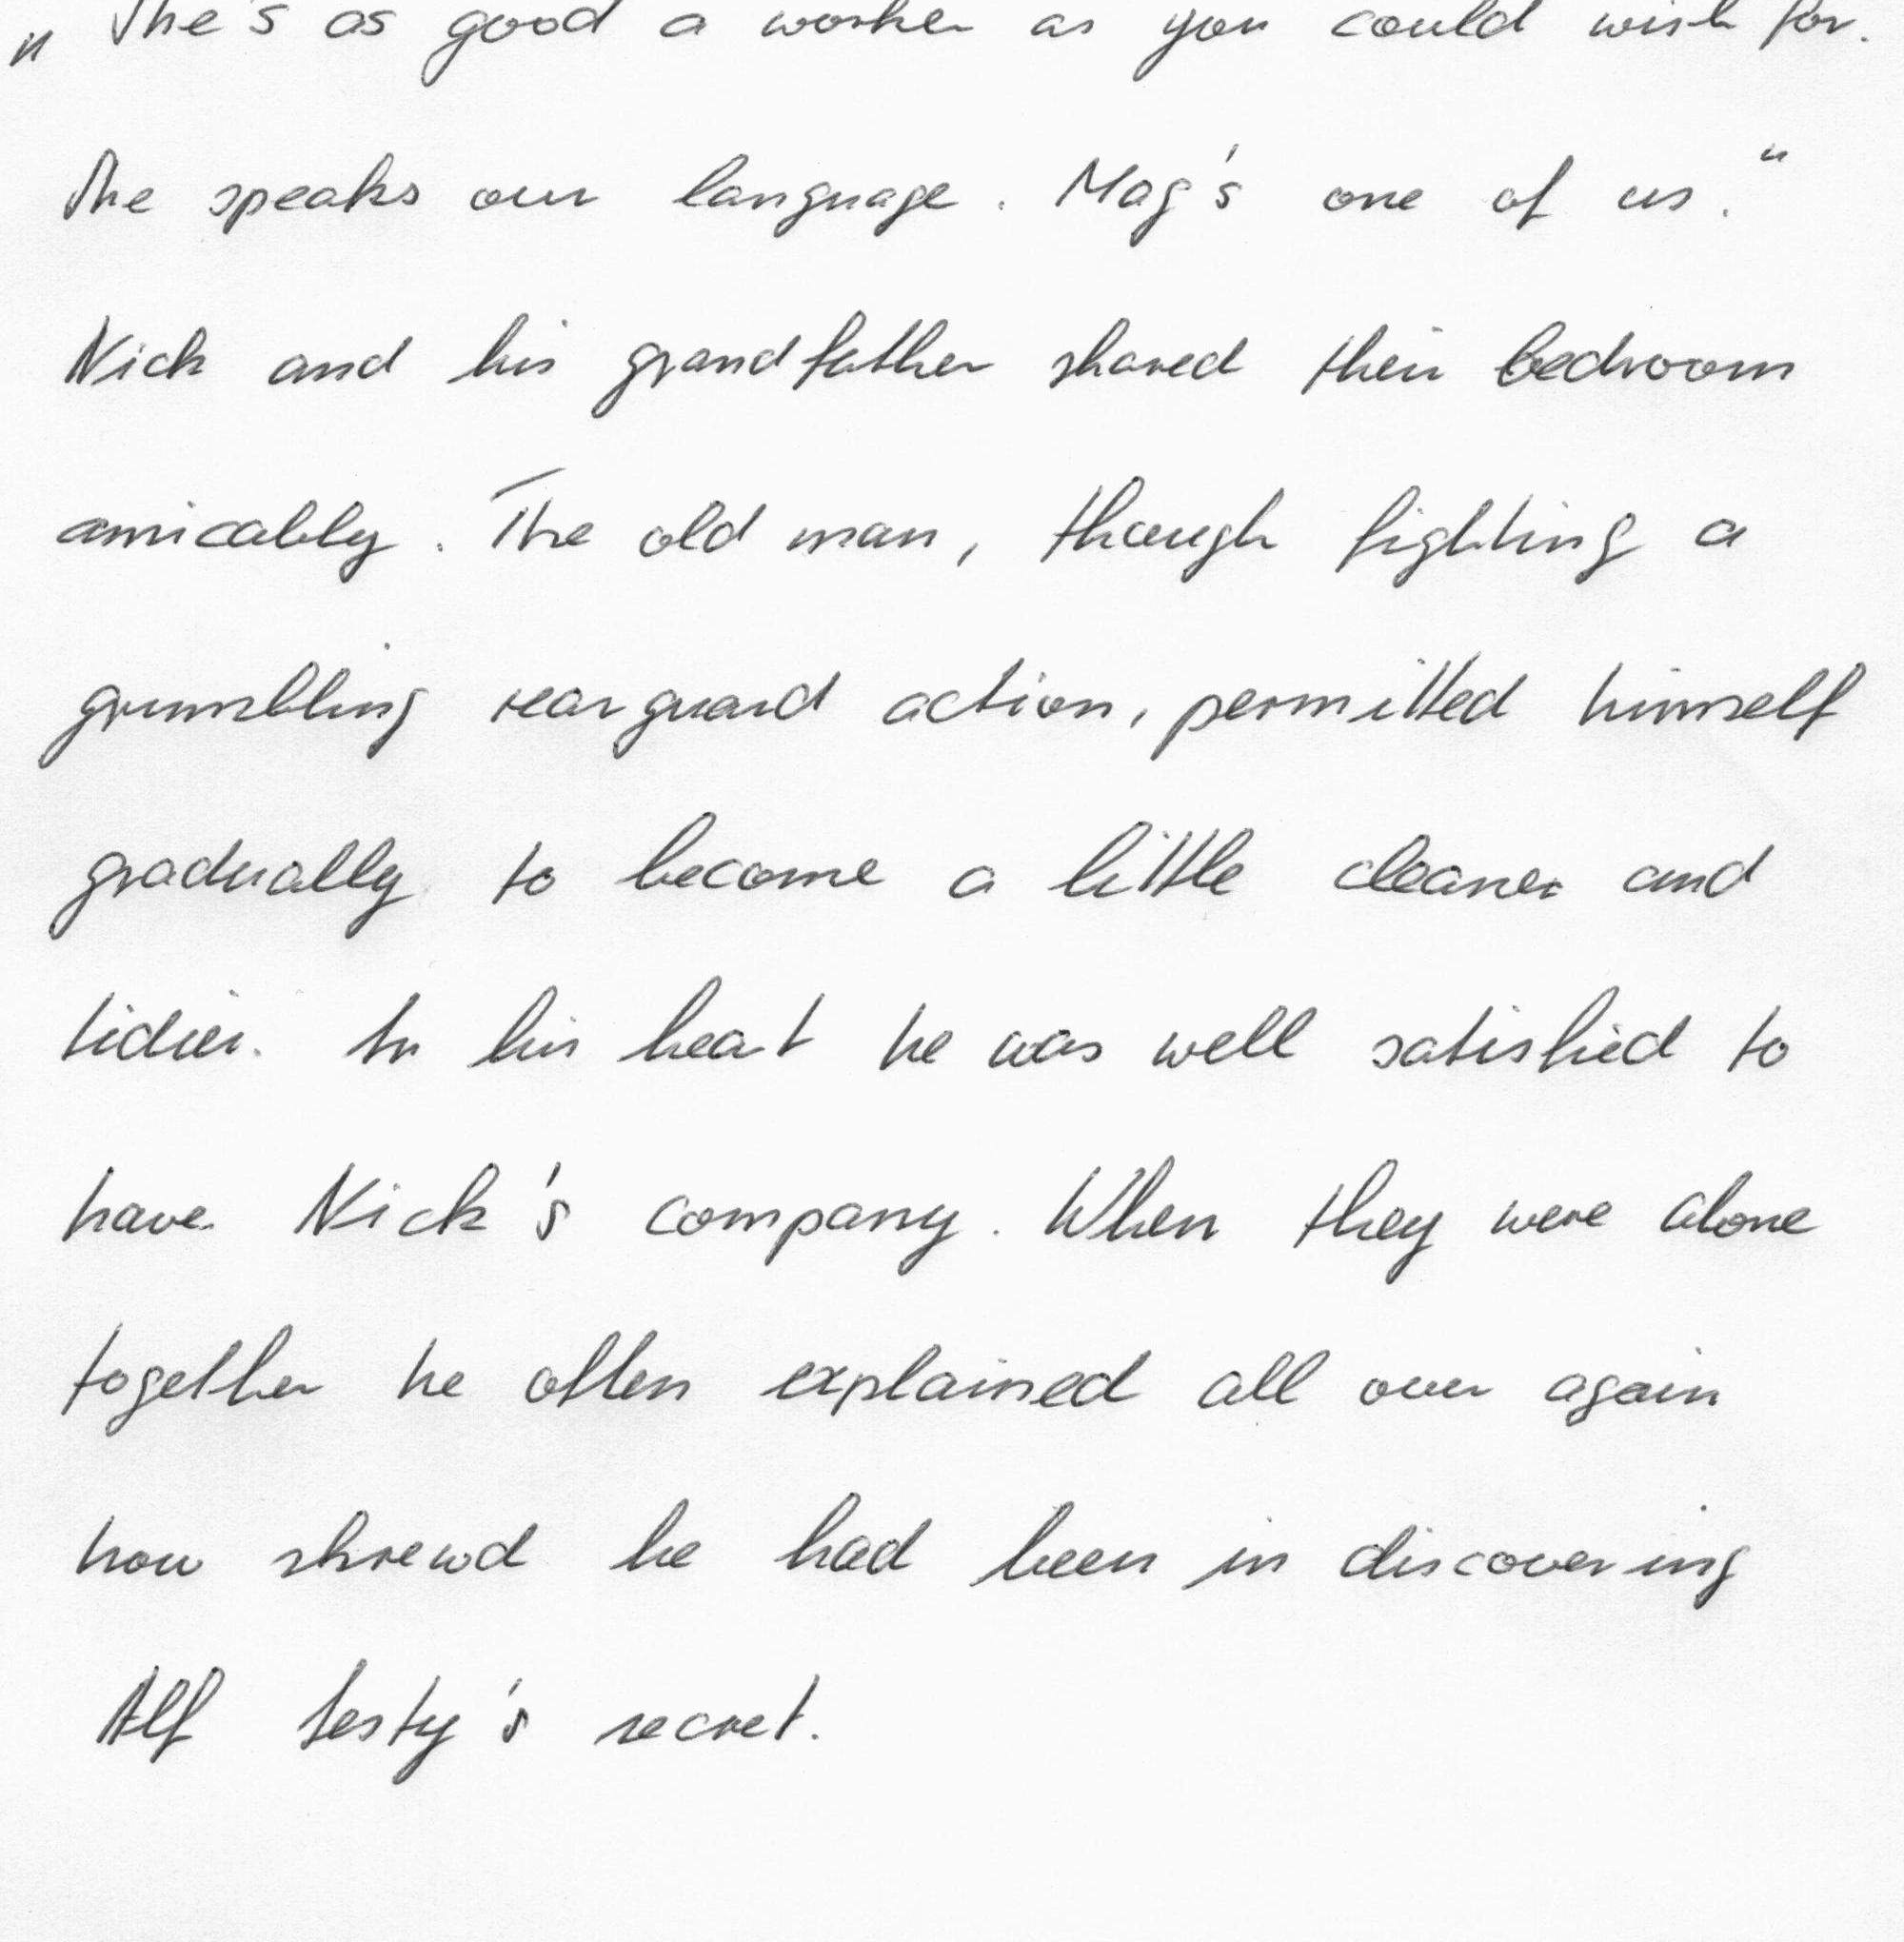 „She's as good a worker as you could wish for.
She speaks our language. Mag's one of us.“
Nick and his grandfather shared their bedroom
amicably. The old man, though fighting a
grumbling rearguard action, permitted himself
gradually to become a little cleaner and
tidier. In his heart he was well satisfied to
have Nick's company. When they were alone
together he often explained all over again
how shrewd he had been in discovering
Alf Testy's secret.